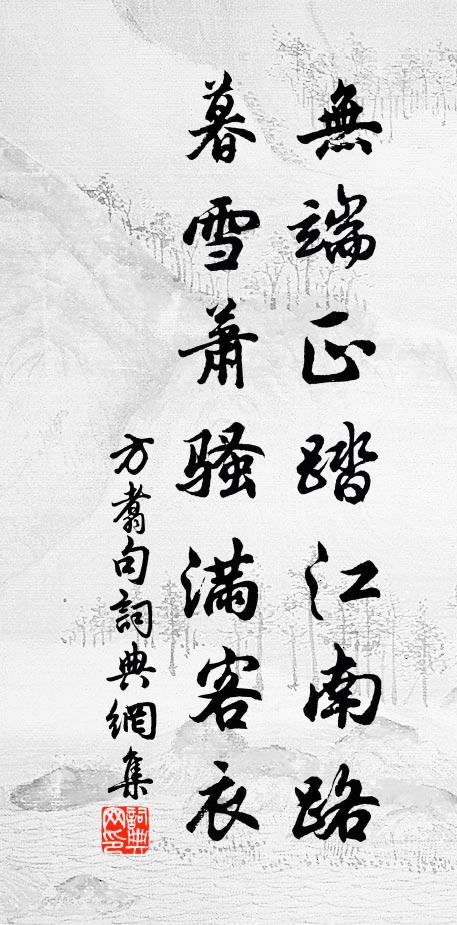 無端正踏江南路
暮雪蕭騷滿客衣
方翥句詞典網集
詞典網印